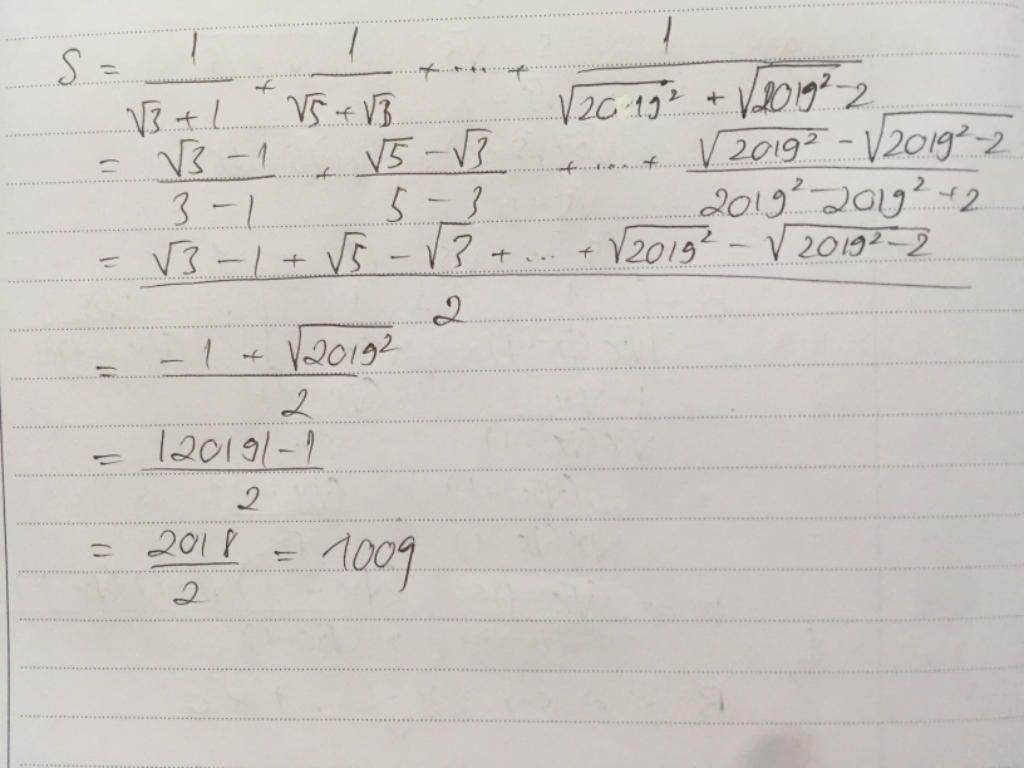 S = 1/(√3 + 1) + 1/(√5 + √3) + ... + 1/(√2019² + √2019² - 2)
= (√3 - 1)/(3 - 1) + (√5 - √3)/(5 - 3) + ... + (√2019² - √2019² - 2)/(2019² - 2019² + 2)
= (√3 - 1 + √5 - √3 + ... + √2019² - √2019² - 2)/2
= (-1 + √2019²)/2
= (|2019| - 1)/2
= 2018/2 = 1009